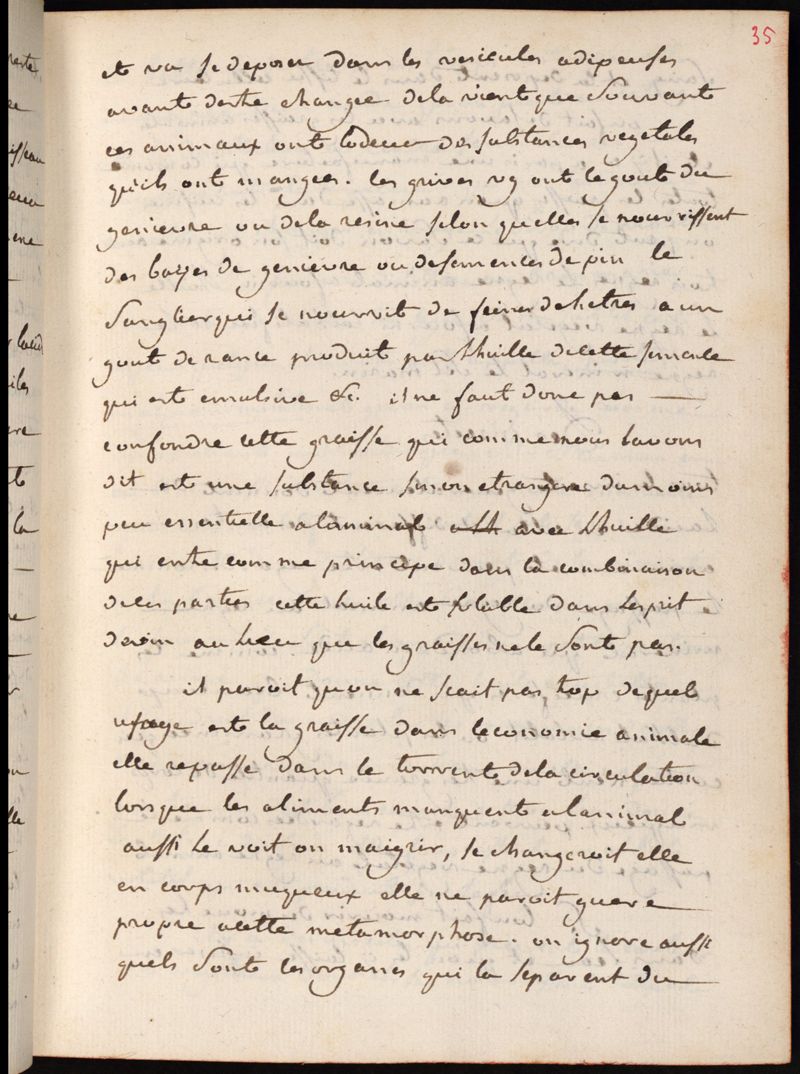 35
et va se deposer dans les vesicules adipeuses
avant destre changée dela vient que souvant
ces animaux ont lodeur des substances vegetales
quils ont mangées. les grives vg ont le gout du
genievre ou dela resine selon quelles se nourrissent
des bayes de genievre ou de semences de pin le
sanglier qui se nourrit de feines de hetres a un
gout de rance produit par lhuille de cette semence
qui est emulsive &c. il ne faut donc pas —
confondre cette graisse qui comme nous lavons
dit est une substance sinon etrangere du moins
peu essentielle a lanimal avec lhuille
qui entre comme principe dans la combinaison
de ces parties cette huile est soluble dans lesprit
de vin au lieu que les graisses ne le sont pas.
il paroit quon ne scait pas trop de quel
usage est la graisse dans leconomie animale
elle repasse dans le torrent de la circulation
lorsque les aliments manquent a lanimal
aussi le voit on maigrir, se changeroit elle
en corps muqueux elle ne paroit guere
propre a cette metamorphose. on ignore aussi
quels sont les organes qui la separent du